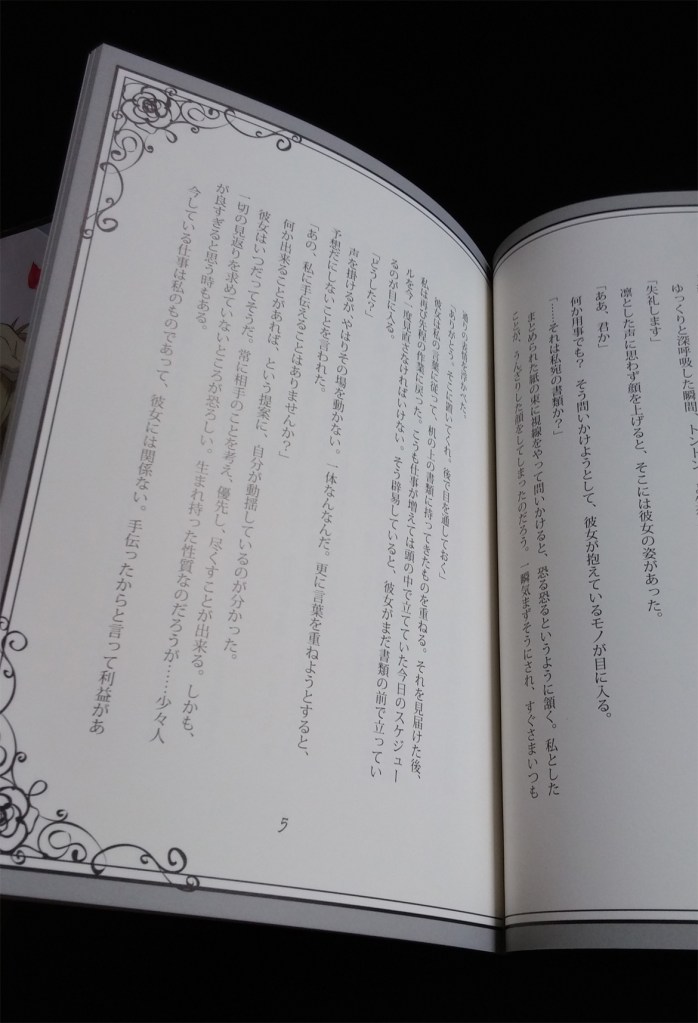 ゆっくりと深呼吸した瞬間、トントン
「失礼します」
凛とした声に思わず顔を上げると、そこには彼女の姿があった。
「ああ、君か」
何か用事でも? そう問いかけようとして、彼女が抱えているモノが目に入る。
「……それは私宛の書類か?」
まとめられた紙の束に視線をやって問いかけると、恐る恐るというように頷く。私とした
ことが、うんざりした顔をしてしまったのだろう。一瞬気まずそうにされ、すぐさまいつも
通りの表情を浮かべた。
「ありがとう。そこに置いてくれ、後で目を通しておく」
彼女は私の言葉に従って、机の上の書類に持ってきたものを重ねる。それを見届けた後、
私は再び先程の作業に戻った。こうも仕事が増えては頭の中で立てていた今日のスケジュー
ルを今一度見直さなければいけない。そう辟易していると、彼女がまだ書類の前で立ってい
るのが目に入る。
「どうした?」
声を掛けるが、やはりその場を動かない。一体なんなんだ。更に言葉を重ねようとすると、
予想だにしないことを言われた。
「あの、私に手伝えることはありませんか?」
何か出来ることがあれば、という提案に、自分が動揺しているのが分かった。
彼女はいつだってそうだ。常に相手のことを考え、優先し、尽くすことが出来る。しかも、
一切の見返りを求めていないところが恐ろしい。生まれ持った性質なのだろうが……少々人
が良すぎると思う時もある。
今している仕事は私のものであって、彼女には関係ない。手伝ったからと言って利益があ
5